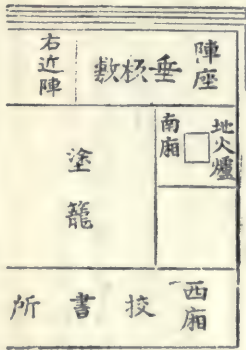 陣座
垂板敷
右近陣
地火爐
南廂
塗籠
西廂
挍書所